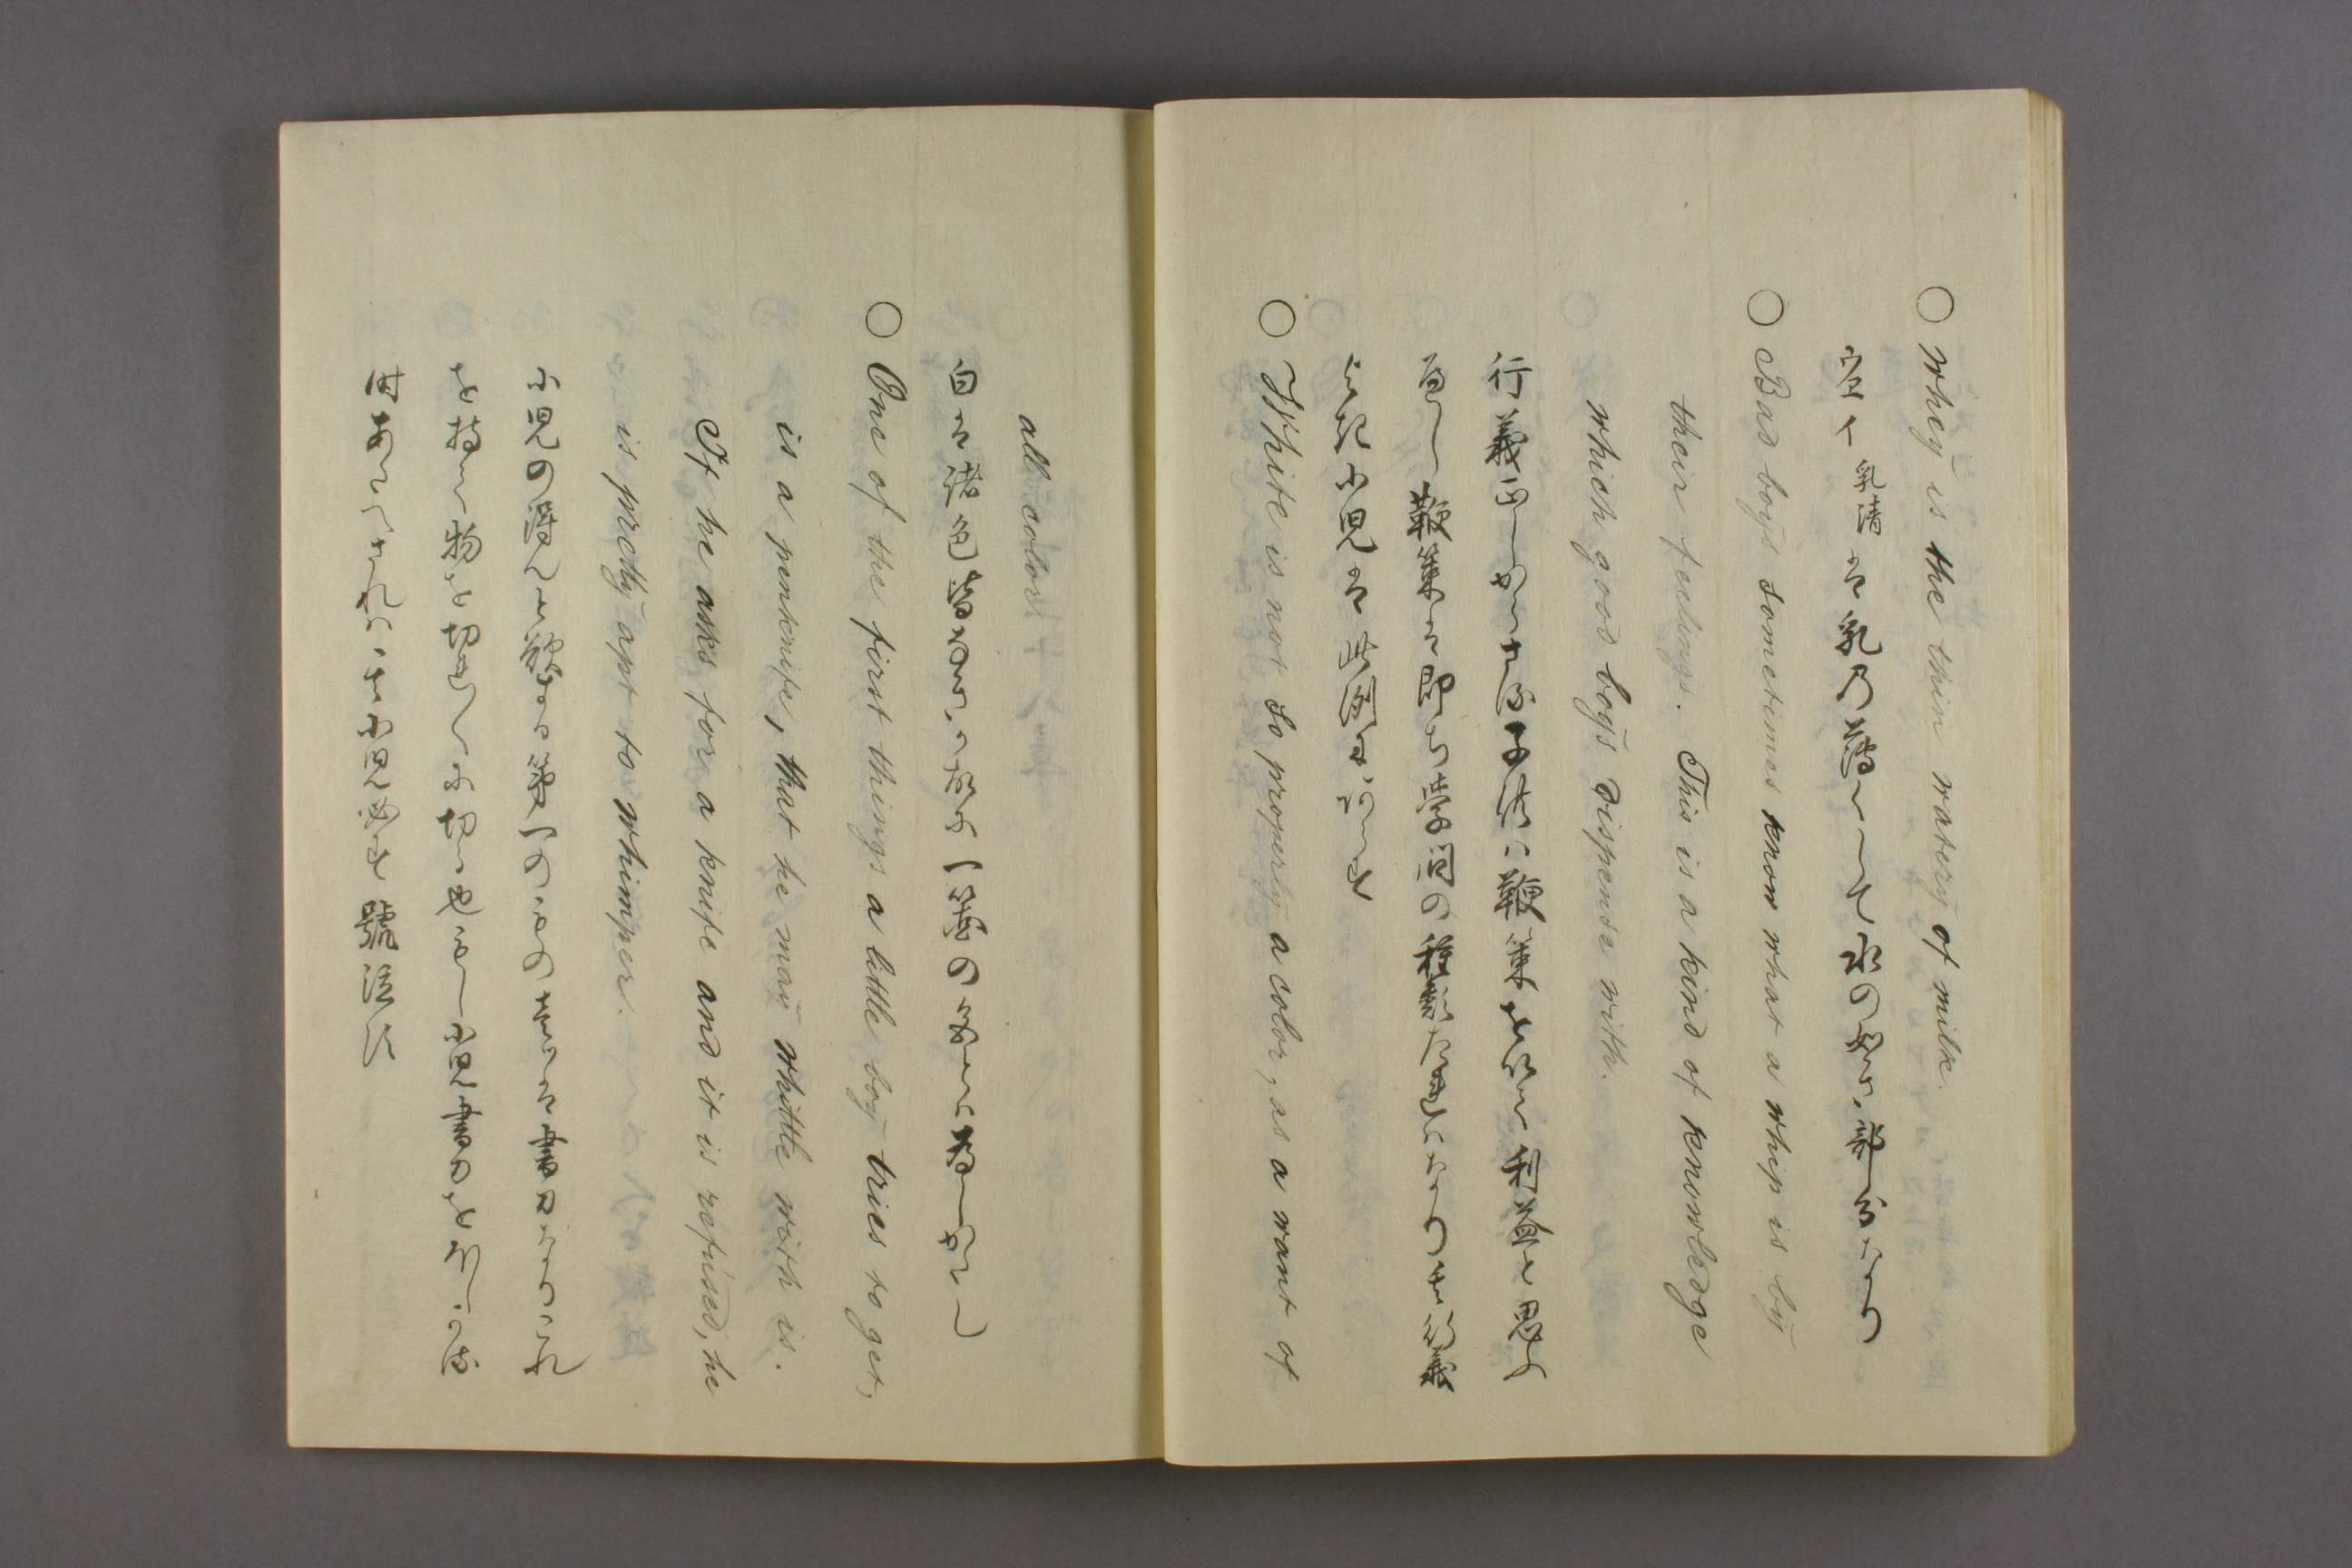 ○ Whey is the thin watery of milk.
ウエイ乳清は乳乃薄くして水の如き部分なり
○ Bad boys sometimes know what a whip is by
their feelings. This is a kind of knowledge
which good boys dispense with.
行義正しからさる子供は鞭策を以て利益と思ふ
へし鞭策は即ち學問の種類たれはなり行義
よき小児は此例にあらす
○ White is not so properly a color, as a want of
all color
白は諸色皆なきか故に一箇の色とは為しかたし
○ One of the first things a little boy tries to get,
is a penknife, that he may whittle with is.
If he asks for a knife and it is refused, he
is pretty apt to whimper.
小児の得んと欲する第一のものは書刀なりこれ
を持て物を切
小児書刀を
時あたへされは小児必す號泣